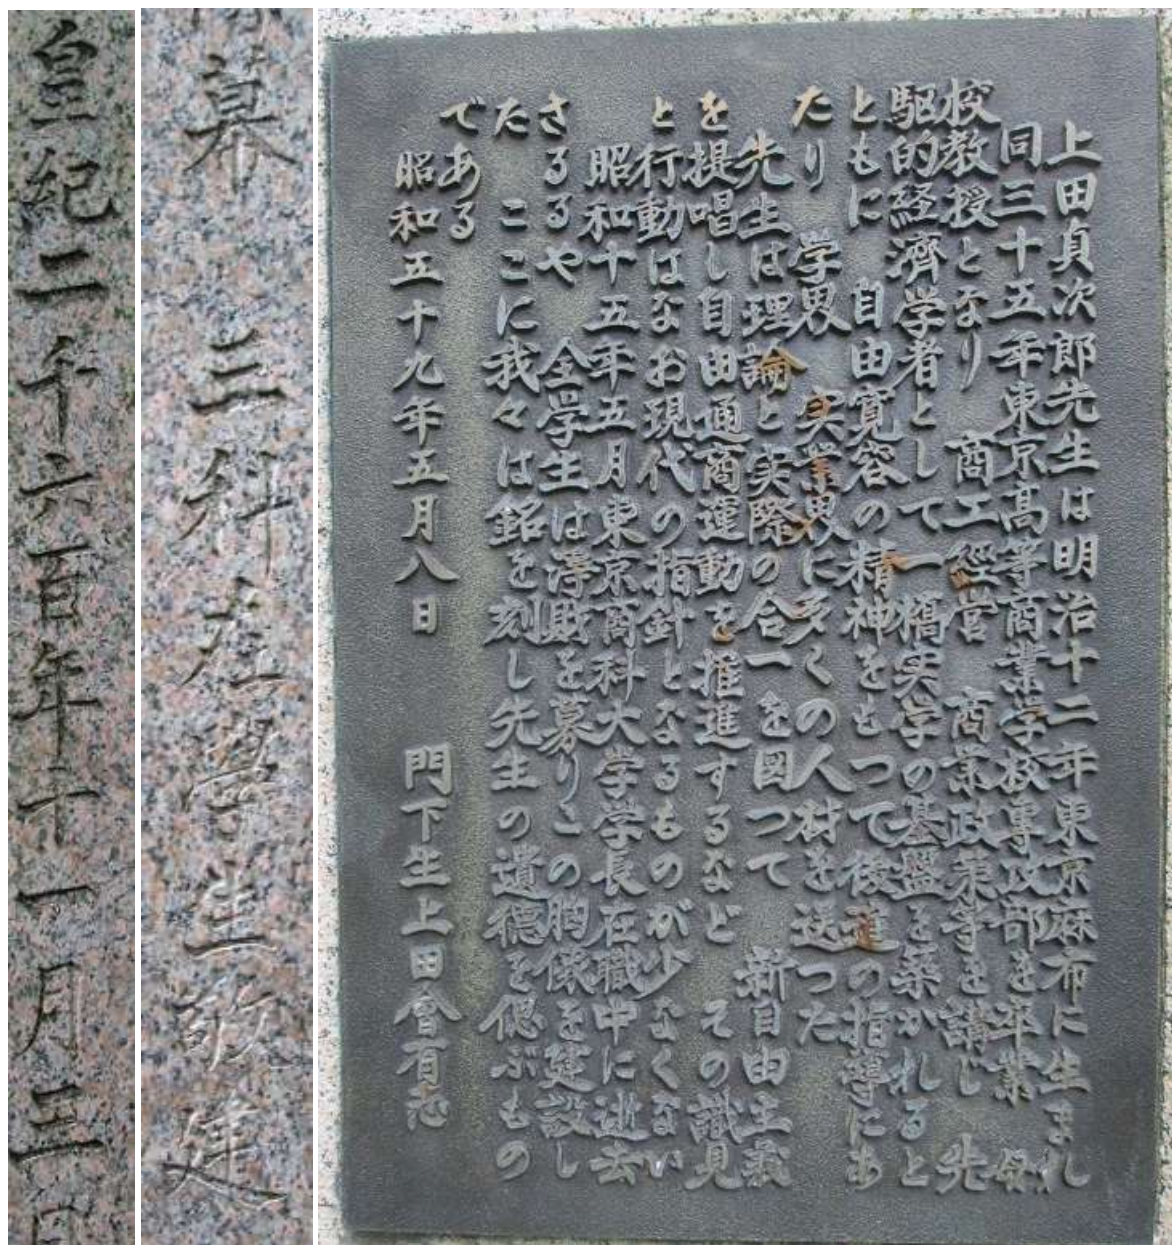 上田貞次郎先生は明治十二年東京麻布に生まれ
同三十五年東京髙等商業学校専攻部を卒業 母
校教授となり 商工經営 商業政策等を講じ 先
駆的経濟学者として一橋実学の基盤を築かれると
ともに 自由寛容の精神をもつて後進の指導にあ
たり 学界 実業界に多くの人材を送つた
先生は理論と実際の合一を図つて 新自由主義
を提唱し自由通商運動を推進するなど その識見
と行動はなお現代の指針となるものが少なくない
昭和十五年五月東京商科大学学長在職中に逝去
さるるや 全学生は浄財を募りこの胸像を建設し
た ここに我々は銘を刻し先生の遺徳を偲ぶもの
である
昭和五十九年五月八日 門下生上田會有志
三科在學生敬建
皇紀二千六百年十一月三日